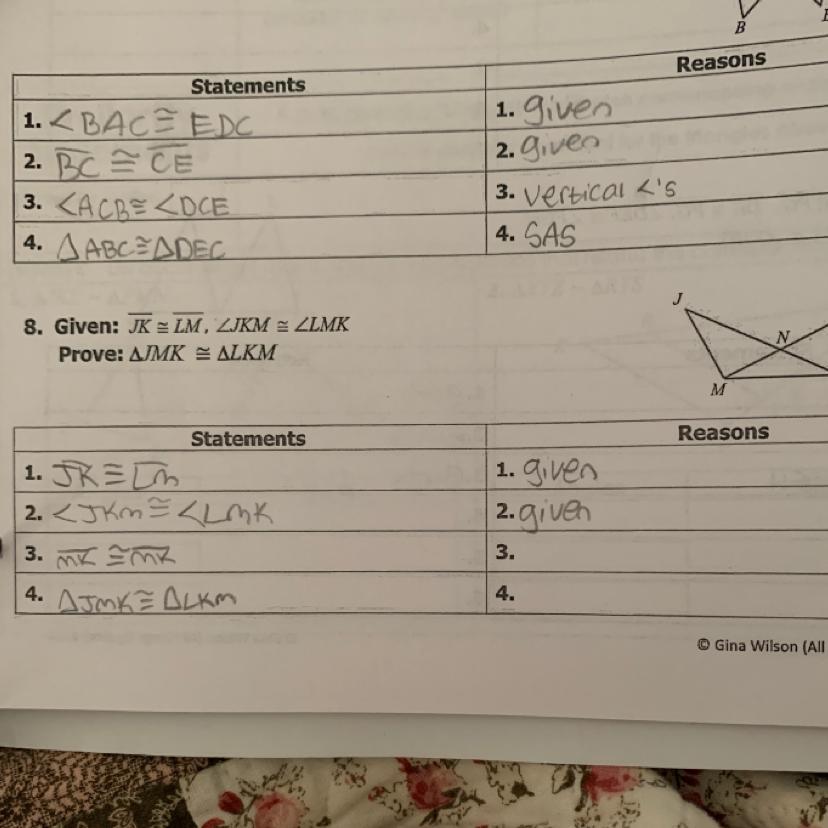 B
Statements Reasons
1. <BAC ≅ EDC 1. given
2. BC ≅ CE 2. given
3. <ACB ≅ <DCE 3. vertical <'s
4. △ABC ≅ △DEC 4. SAS
8. Given: JK ≅ LM, ∠JKM ≅ ∠LMK
Prove: ΔJMK ≅ ΔLKM
J
N
M
Statements Reasons
1. JK ≅ Lm 1. given
2. <JKm ≅ <LmK 2. given
3. mK ≅ mK 3.
4. △JmK ≅ △LKm 4.
© Gina Wilson (All